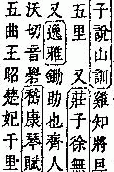 子說山訓雞知將旦
五里　又莊子徐無
又逸雅鋤助也齊人
沃切音礐嵇康琴賦
五曲王昭楚妃千里